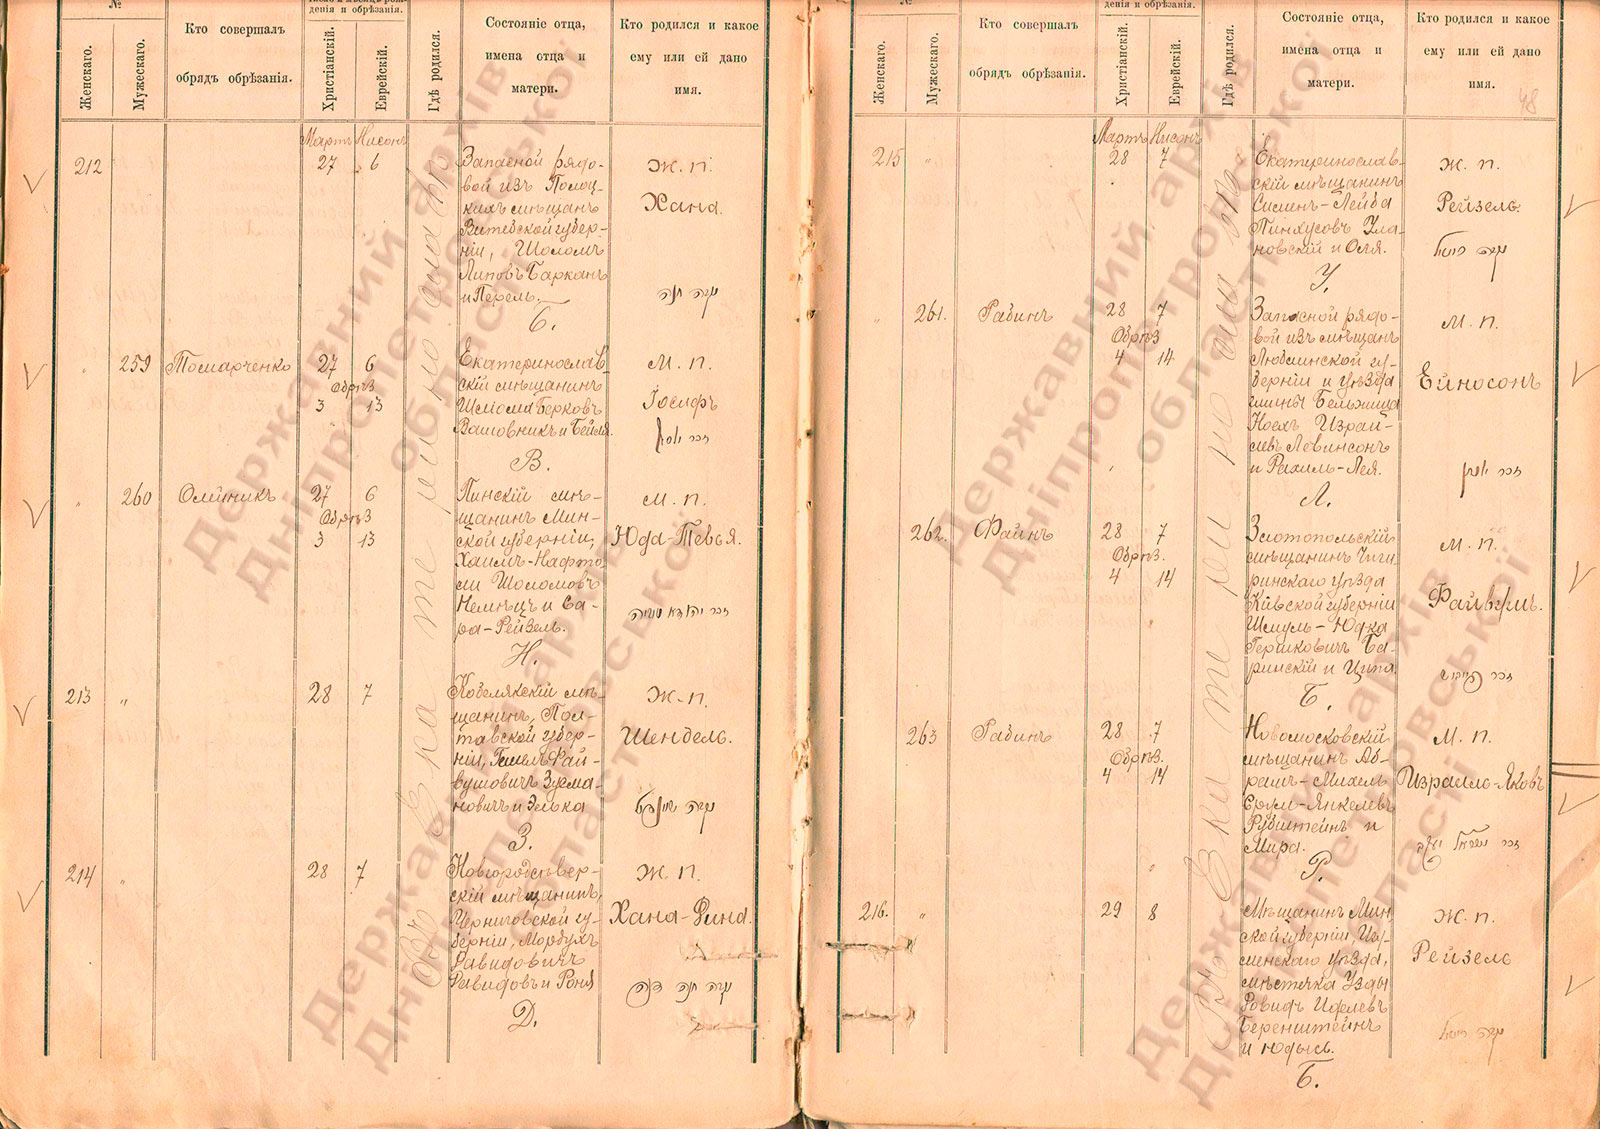 №
дения и обрѣзанія.
Женскаго.
Мужескаго.
Кто совершалъ
обрядъ обрѣзанія.
Христіанскій.
Еврейскій.
Гдѣ родился.
Состояніе отца,
имена отца и
матери.
Кто родился и какое
ему или ей дано
имя.
Мартъ Нисонъ
212 27 6
Запасной рядо-
вой изъ Полоц-
кихъ мѣщанъ
Витебской губер-
ніи, Шоломъ
Липовъ Барканъ
и Перель.
Б.
Ж. п.
Хана.
נקבה חנה
259 Помарченко 27 6
Обрѣз
3 13
Екатеринослав
скій мѣщанинъ
Шліома Берковъ
Вашовникъ и Бейля.
В.
М. п.
Іосифъ
זכר יוסף
260 Олейникъ 27 6
Обрѣз
3 13
Пинскій мѣ-
щанинъ Мин-
ской губерніи,
Хаимъ-Нафто-
ли Шоломовъ
Немецъ и Са-
ра-Рейзель.
Н.
М. п.
Юда-Тевья.
זכר יהודא טוויה
213 „ 28 7
Кобелякскій мѣ-
щанинъ, Пол-
тавской губер-
ніи, Гешель Фай-
вушовичъ Зусма-
новичъ и Элька
З.
Ж. п.
Шендель.
נקבה שיינדיל
214 „ 28 7
Новгородсѣвер-
скій мѣщанинъ,
Черниговской гу-
берніи, Мордухъ
Давидовичъ
Давидовъ и Роня
Д.
Ж. п.
Хана-Дина.
נקבה חנה דינה
Въ Екатеринославѣ
№
дения и обрѣзанія.
Женскаго.
Мужескаго.
Кто совершалъ
обрядъ обрѣзанія.
Христіанскій.
Еврейскій.
Гдѣ родился.
Состояніе отца,
имена отца и
матери.
Кто родился и какое
ему или ей дано
имя.
48
Мартъ Нисонъ
215 „ 28 7
Екатеринослав-
скій мѣщанинъ
Сименъ-Лейба
Пинхусовъ Ула-
новскій и Оля.
У.
Ж. п.
Рейзель.
נקבה רייזיל
„ 261. Рабинъ 28 7
Обрѣз
4 14
Запасной рядо-
вой изъ мѣщанъ
Люблинской гу-
берніи и уѣзда
гмины Бельжица
Ноехъ Израи-
левъ Левинсонъ
и Рахиль-Лея.
Л.
М. п.
Ейносонъ
262. Файнъ 28 7
Обрѣз.
4 14
Златопольскій
мѣщанинъ Чиги
ринскаго уѣзда
Кіевской губерніи
Шмуль-Юдка
Гершковичъ Ба-
ринскій и Ципа
Б.
М. п.
Файвушъ.
זכר פייוויש
263 Рабинъ 28 7
Обрѣз.
4 14
Новомосковскій
мѣщанинъ Аб-
рамъ-Михель
Срул-Янкелевъ
Рубштейнъ и
Мира.
Р.
М. п.
Израиль-Яковъ
זכר ישראל יעקב
216. „ 29 8
Мѣщанинъ Мин
ской губерніи, Игу-
менскаго уѣзда,
мѣстечка Узды
Довидъ Иоселевъ
Беренштейнъ
и Юдысь.
Б.
Ж. п.
Рейзель
נקבה רייזיל
Въ Екатеринославѣ
Державний архів
Дніпропетровської
області